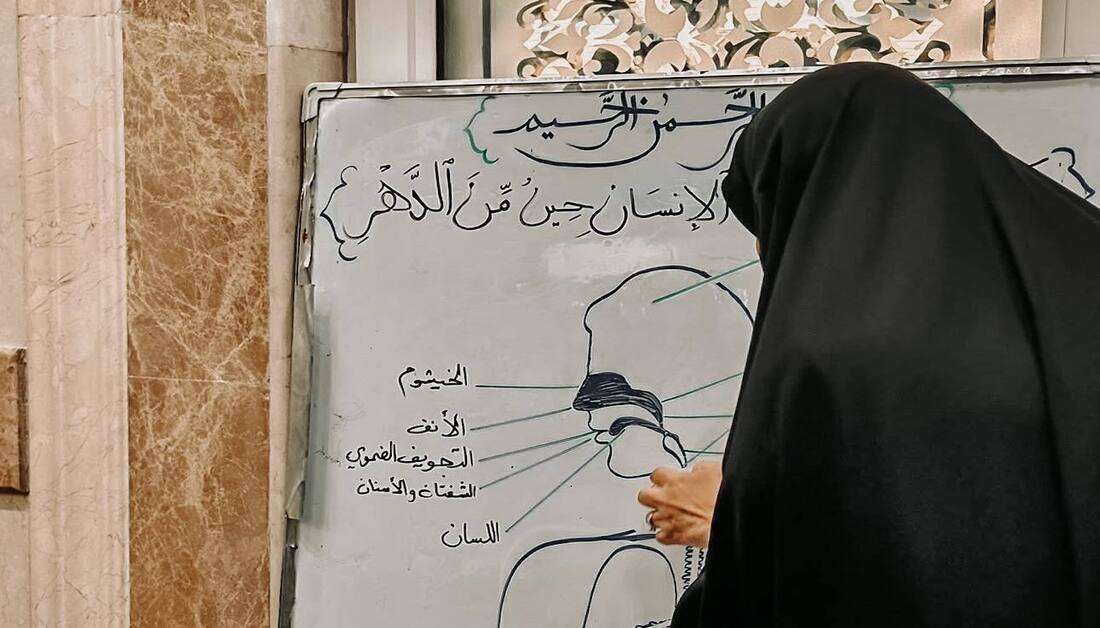 الرَّحمٰن الرَّحيم
ٱلإِنسَان حِينٌ مِّنَ ٱلدَّهْرِ
الخيشوم
الأنف
التجويف الفموي
الشفتان والأسنان
اللسان